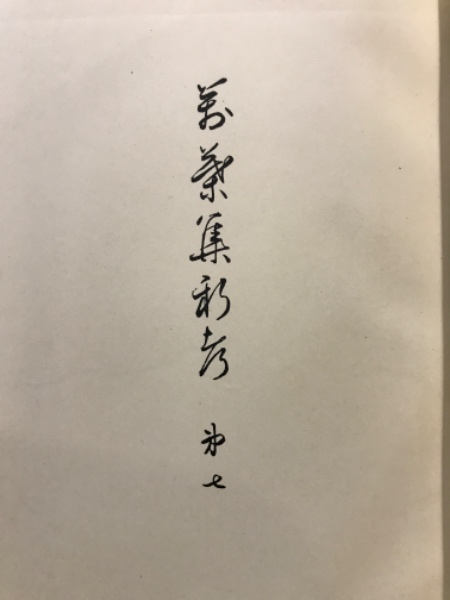 萬葉集新考 第七